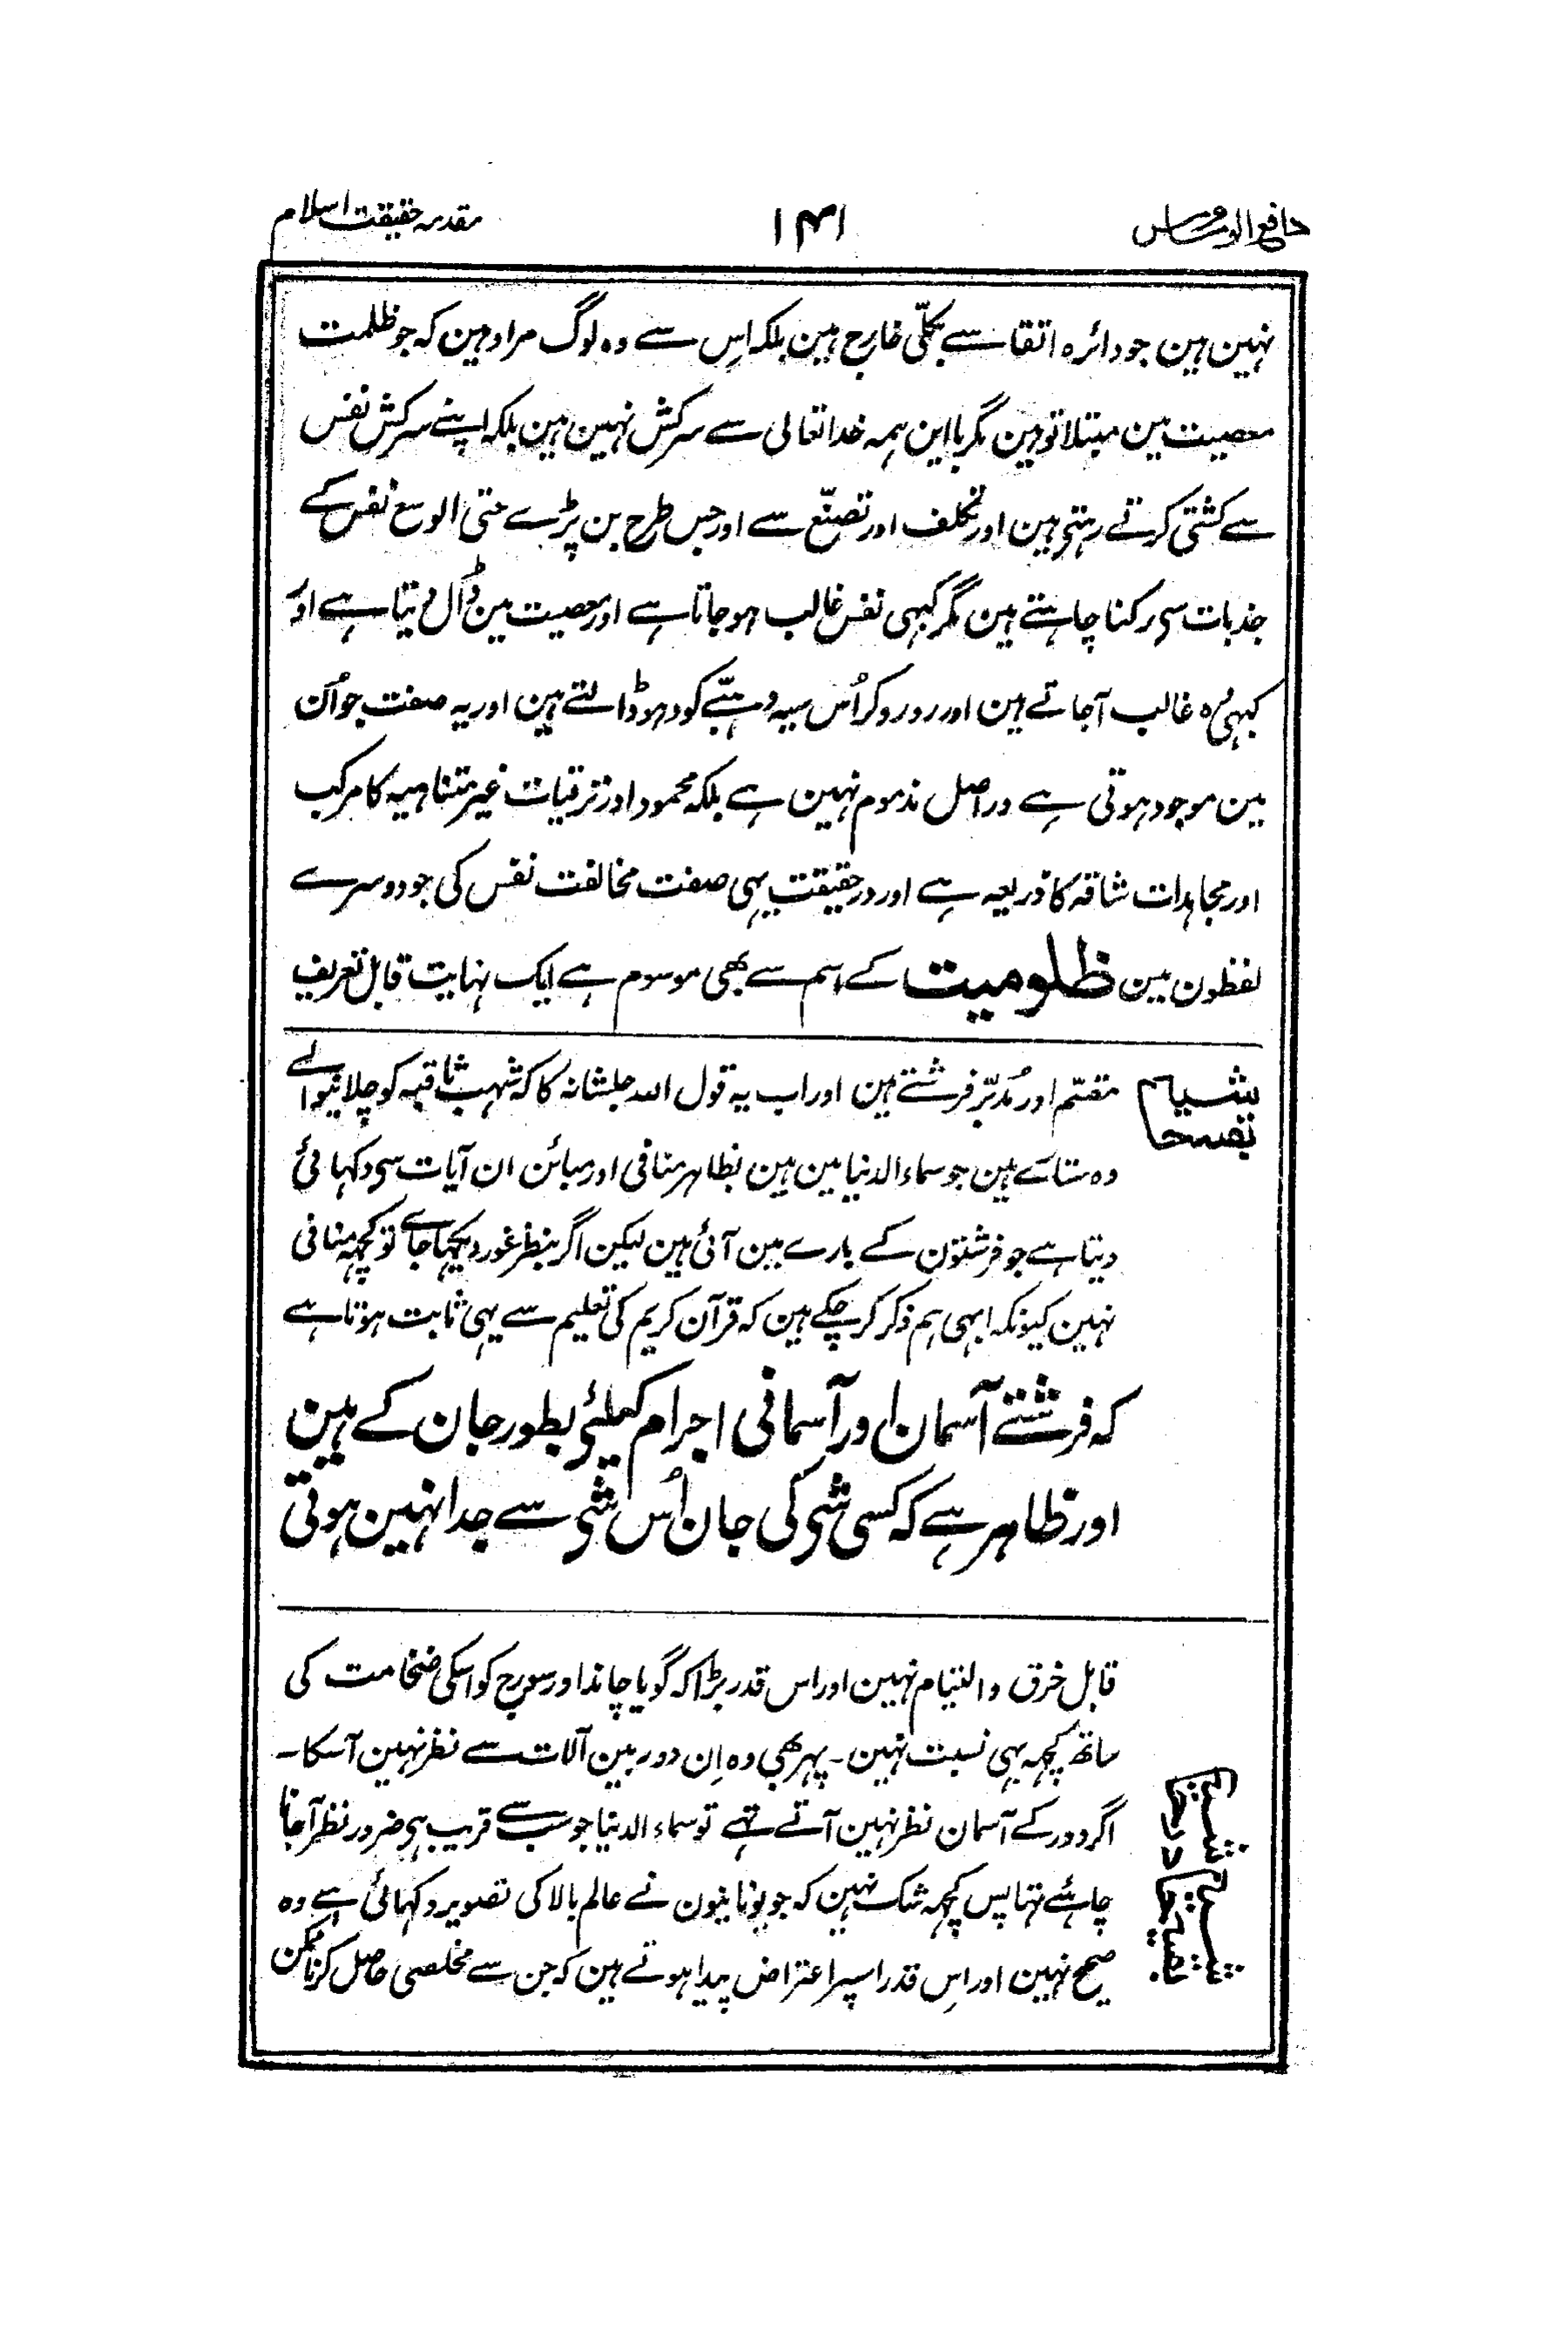 دافع الوساوس
۱۴۱
مقدمہ حقیقت اسلام
نہین ہین جو دائرہ اتقا سے بکلّی خارج ہین بلکہ اِس سے وہ لوگ مراد ہین کہ جو ظلمت
معصیت مین مبتلا تو ہین مگر باایں ہمہ خدا تعالی سے سرکش نہین ہین بلکہ اپنے سرکش نفس
سے کشتی کرتے رہتی ہین اور تکلف اور تصنّع سے اور جس طرح بن پڑے حتی الوسع نفس کے
جذبات سی رکنا چاہتے ہین مگر کبہی نفس غالب ہو جاتا ہے اور معصیت مین ڈال دیتا ہے اور
کبہی وہ غالب آجاتے ہین اور رو رو کر اُس سیہ دہبّے کو دہو ڈالتے ہین اور یہ صفت جو اُن
مین موجود ہوتی ہے دراصل مذموم نہین ہے بلکہ محمود اور ترقیات غیر متناہیہ کا مرکب
اور مجاہدات شاقہ کا ذریعہ ہے اور درحقیقت یہی صفت مخالفت نفس کی جو دوسرے
لفظون مین ظلومیت کے اسم سے بھی موسوم ہے ایک نہایت قابل تعریف
مقسّم اور مُدبّر فرشتے ہین اور اب یہ قول اللہ جلشانہ کا کہ شہب ثاقبہ کو چلانیوالے
وہ ستارے ہین جو سماء الدنیا مین ہین بظاہر منافی اور مبائن ان آیات سی دکہائی
دیتا ہے جو فرشتوں کے بارے مین آئی ہین لیکن اگر بنظر غور دیکہا جاے تو کچہہ منافی
نہین کیونکہ ابہی ہم ذکر کر چکے ہین کہ قرآن کریم کی تعلیم سے یہی ثابت ہوتا ہے
کہ فرشتے آسمان اور آسمانی اجرام کیلئے بطور جان کے ہین
اور ظاہر ہے کہ کسی شی کی جان اُس شی سے جدا نہین ہوتی
قابل خرق و التیام نہین اور اس قدر بڑا کہ گویا چاند اور سورج کو اسکی ضخامت کی
ساتھ کچہہ بہی نسبت نہین ۔ پہر بھی وہ اِن دوربین آلات سے نظر نہین آسکا ۔
اگر دور کے آسمان نظر نہین آتے تہے تو سماء الدنیا جو سب سے قریب ہی ضرور نظر آجانا
چاہئے تہا پس کچہہ شک نہین کہ جو یونانیون نے عالم بالا کی تصویر دکہائی ہے وہ
صحیح نہین اور اِس قدر اسپر اعتراض پیدا ہوتے ہین کہ جن سے مخلصی حاصل کرنا ممکن